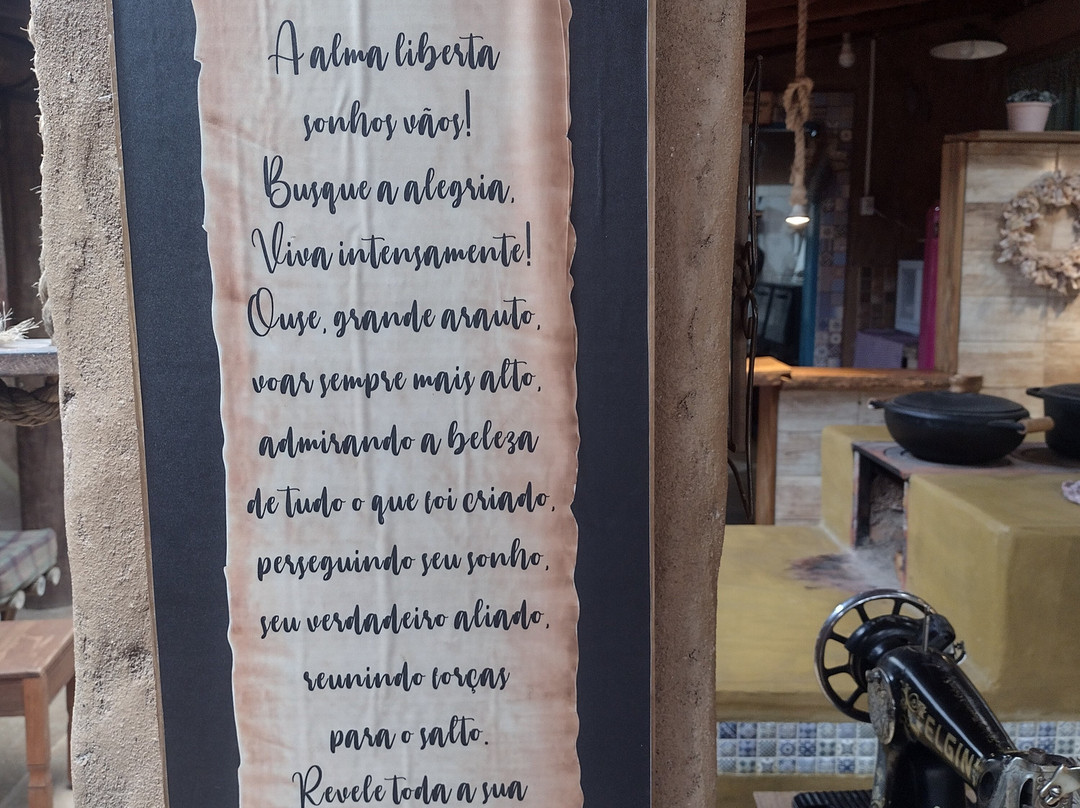 A alma liberta
sonhos vãos!
Busque a alegria,
Viva intensamente!
Ouse, grande arauto,
voar sempre mais alto,
admirando a beleza
de tudo o que foi criado,
perseguindo seu sonho,
seu verdadeiro aliado,
reunindo forças
para o salto.
Revele toda a sua
ELGIN